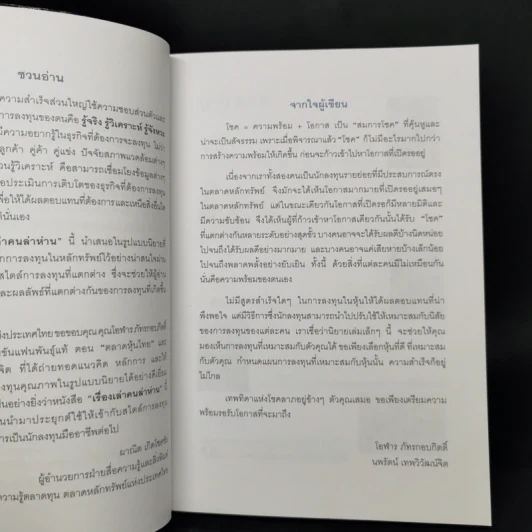 ชวนอ่าน
ความสำเร็จส่วนใหญ่ใช้ความชอบส่วนตัวและ
การลงทุนของตนคือ รู้จริง รู้วิเคราะห์ รู้จังหวะ
มีความอยากรู้ในธุรกิจที่ต้องการจะลงทุน ไม่ว่า
ลูกค้า คู่ค้า คู่แข่ง ปัจจัยสภาพแวดล้อมต่างๆ
วนรู้วิเคราะห์ คือสามารถเชื่อมโยงข้อมูลต่างๆ
อประเมินการเติบโตของธุรกิจที่ต้องการลงทุน
เพื่อให้ได้ผลตอบแทนที่ต้องการและเหนือสิ่งอื่นใด
ดันั่นเอง
ล่าคนล่าห่าน" นี้ นำเสนอในรูปแบบนิยายที่
การลงทุนในหลักทรัพย์ไว้อย่างน่าสนใจผ่าน
สไตล์การลงทุนที่แตกต่าง ซึ่งจะช่วยให้ผู้อ่าน
และผลลัพธ์ที่แตกต่างกันของการลงทุนที่เกิดขึ้น
ห่งประเทศไทย ขอขอบคุณ คุณโอฬาร ภัทรกอบกิตติ์
ขันแฟนพันธุ์แท้ ตอน "ตลาดหุ้นไทย" และ
จิต ที่ได้ถ่ายทอดแนวคิด หลักการ และให้
งทุนคุณภาพในรูปแบบนิยายได้อย่างดีเยี่ยม
เป็นอย่างยิ่งว่าหนังสือ "เรื่องเล่าคนล่าห่าน" นี้
นำมาประยุกต์ใช้ให้เข้ากับสไตล์การลงทุน
การเป็นนักลงทุนมืออาชีพต่อไป
ผาณิต เกิดโชคชัย
ผู้อำนวยการฝ่ายสื่อความรู้และสิ่งพิมพ์
ความรู้ตลาดทุน ตลาดหลักทรัพย์แห่งประเทศไทย
จากใจผู้เขียน
โชค = ความพร้อม + โอกาส เป็น "สมการโชค" ที่คุ้นหูและ
น่าจะเป็นสัจธรรม เพราะเมื่อพิจารณาแล้ว "โชค" ก็ไม่มีอะไรมากไปกว่า
การสร้างความพร้อมให้เกิดขึ้น ก่อนจะก้าวเข้าไปหาโอกาสที่เปิดรออยู่
เนื่องจากเราทั้งสองคนเป็นนักลงทุนรายย่อยที่มีประสบการณ์ตรง
ในตลาดหลักทรัพย์ จึงมักจะได้เห็นโอกาสมากมายที่เปิดรออยู่เสมอๆ
ในตลาดหลักทรัพย์ แต่ในขณะเดียวกันโอกาสที่เปิดรอก็มีหลายมิติและ
มีความซับซ้อน จึงได้เห็นผู้ที่ก้าวเข้าหาโอกาสเดียวกันนั้นได้รับ "โชค"
ที่แตกต่างกันหลายระดับอย่างสุดขั้ว บางคนอาจจะได้รับผลดีบ้างนิดหน่อย
ไปจนถึงได้รับผลดีอย่างมากมาย และบางคนอาจจะแค่เสียหายบ้างเล็กน้อย
ไปจนถึงพลาดพลั้งอย่างยับเยิน ทั้งนี้ ด้วยสิ่งที่แต่ละคนมีไม่เหมือนกัน
นั่นคือความพร้อมของตนเอง
ไม่มีสูตรสำเร็จใดๆ ในการลงทุนในหุ้นให้ได้ผลตอบแทนที่น่า
พึงพอใจ แต่มีวิธีการซึ่งนักลงทุนสามารถนำไปปรับใช้ให้เหมาะสมกับนิสัย
ของการลงทุนของแต่ละคน เราเชื่อว่านิยายเล่มเล็กๆ นี้ จะช่วยให้คุณ
มองเห็นการลงทุนที่เหมาะสมกับตัวคุณได้ ขอเพียงเลือกหุ้นที่ดี ที่เหมาะสม
กับตัวคุณ กำหนดแผนการลงทุนที่เหมาะสมกับหุ้นนั้น ความสำเร็จก็อยู่
ไม่ไกล
เทพธิดาแห่งโชคลาภอยู่ข้างๆ ตัวคุณเสมอ ขอเพียงเตรียมความ
พร้อมรอรับโอกาสที่จะมาถึง
โอฬาร ภัทรกอบกิตติ์
นพรัตน์ เทพวิวัฒน์จิต